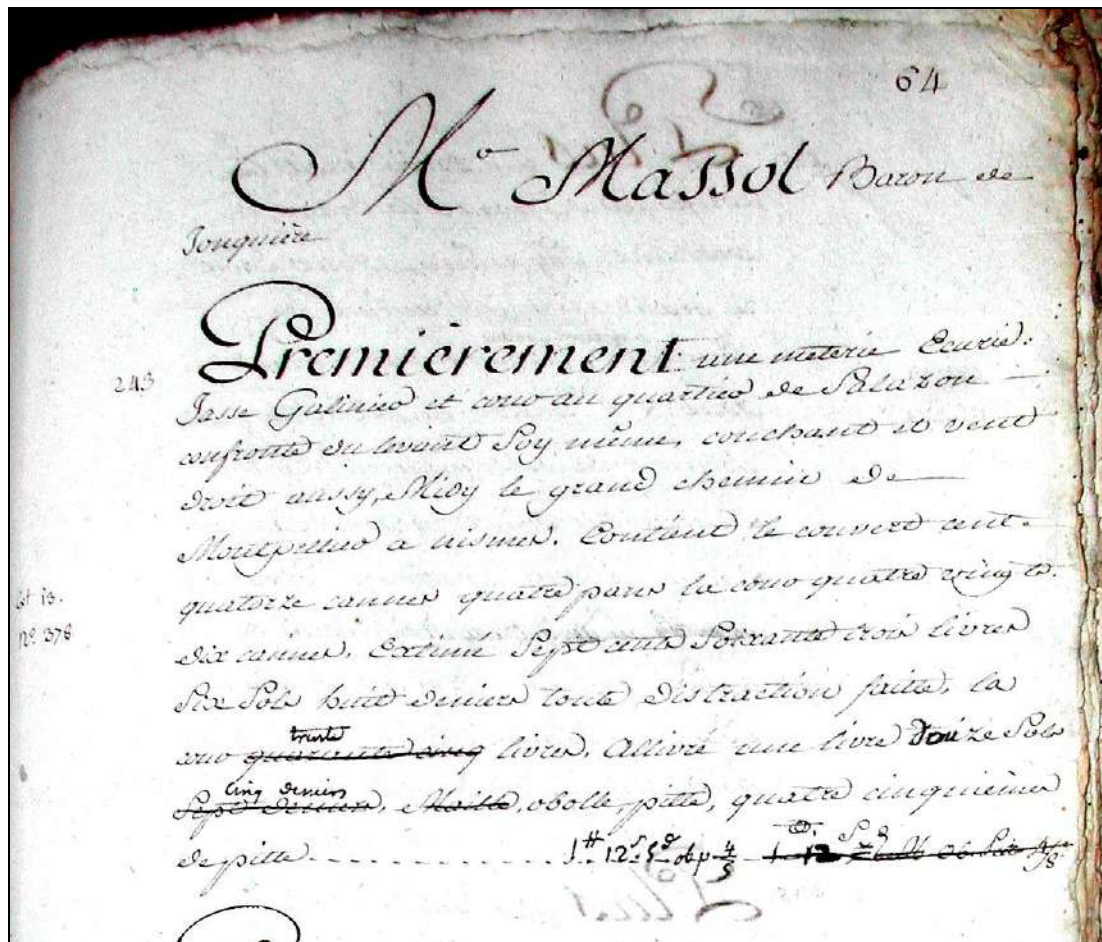 64
Mr Massol Baron de
Jonquière
243
Premièrement une meterie Ecurie.
Jasse Galinier et cour au quartier de Salazon
confronte du levant Soy même, couchant et vent
droit aussy, Midy le grand chemin de
Montpellier a nismes. Contient le couvert cent
quatorze cannes quatre pans la cour quatre vingts
n.º 378
dix cannes. Extimé Sept cents Soixante trois livres
Six Sols huit deniers toute distraction faitte, la
trente
cour quarante cinq livres. Allivré une livre Douze Sols
cinq deniers
Sept deniers, Maille, obolle, pitte, quatre cinquièmes
de pitte ........... 1# 12s 5d ob p 4/5
Plus